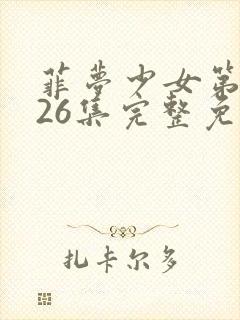 菲梦少女第
26集完整免
扎卡尔多